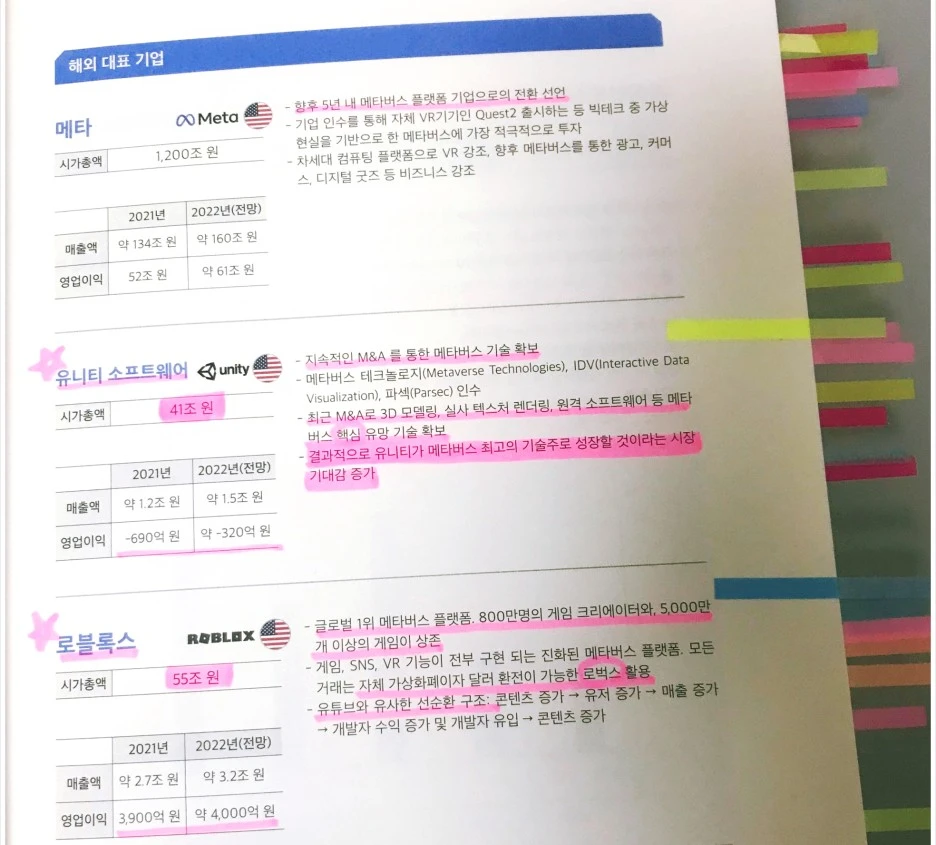 해외 대표 기업
메타
Meta
시가총액 1,200조 원
2021년 2022년(전망)
매출액 약 134조 원 약 160조 원
영업이익 52조 원 약 61조 원
- 향후 5년 내 메타버스 플랫폼 기업으로의 전환 선언
- 기업 인수를 통해 자체 VR기기인 Quest2 출시하는 등 빅테크 중 가상
현실을 기반으로 한 메타버스에 가장 적극적으로 투자
- 차세대 컴퓨팅 플랫폼으로 VR 강조, 향후 메타버스를 통한 광고, 커머
스, 디지털 굿즈 등 비즈니스 강조
유니티 소프트웨어
unity
시가총액 41조 원
2021년 2022년(전망)
매출액 약 1.2조 원 약 1.5조 원
영업이익 -690억 원 약 -320억 원
- 지속적인 M&A 를 통한 메타버스 기술 확보
- 메타버스 테크놀로지(Metaverse Technologies), IDV(Interactive Data
Visualization), 파섹(Parsec) 인수
- 최근 M&A로 3D 모델링, 실사 텍스처 렌더링, 원격 소프트웨어 등 메타
버스 핵심 유망 기술 확보
- 결과적으로 유니티가 메타버스 최고의 기술주로 성장할 것이라는 시장
기대감 증가
로블록스
ROBLOX
시가총액 55조 원
2021년 2022년(전망)
매출액 약 2.7조 원 약 3.2조 원
영업이익 3,900억 원 약 4,000억 원
- 글로벌 1위 메타버스 플랫폼. 800만명의 게임 크리에이터와, 5,000만
개 이상의 게임이 상존
- 게임, SNS, VR 기능이 전부 구현 되는 진화된 메타버스 플랫폼. 모든
거래는 자체 가상화폐이자 달러 환전이 가능한 로벅스 활용
- 유튜브와 유사한 선순환 구조: 콘텐츠 증가 → 유저 증가 → 매출 증가
→ 개발자 수익 증가 및 개발자 유입 → 콘텐츠 증가